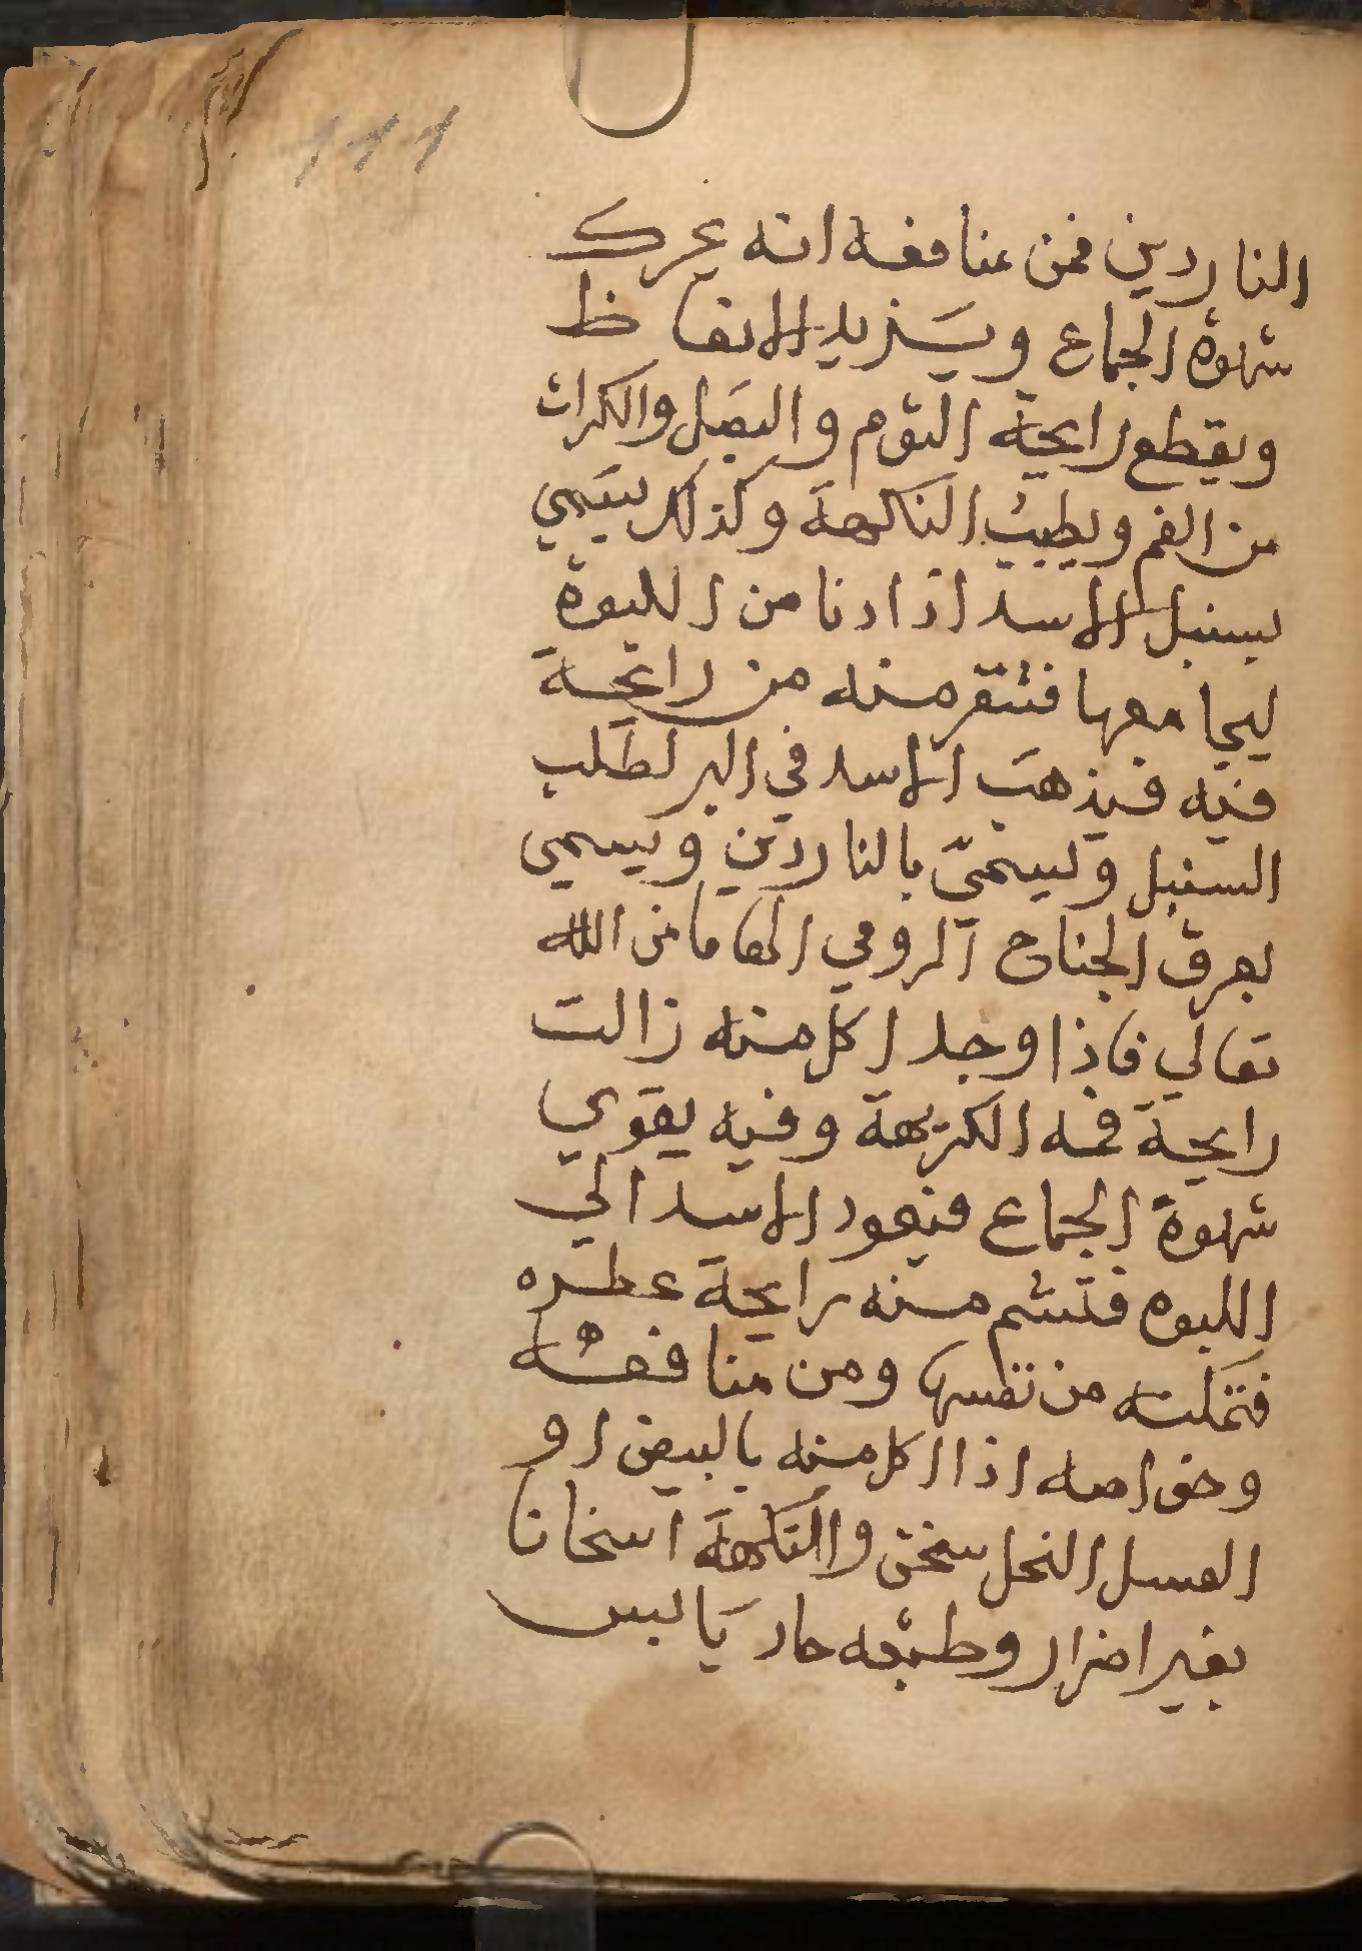 111
الناردين فمن منافعه انه يحرك
شهوة الجماع ويسزيد الانعاظ
ويقطع رايحة الثوم والبصل والكراث
من الفم ويطيب النكهة وكذلك يسمي
بسنبل الاسد اذا دنا من اللبوة
ليجامعها فتنفر منه من رايحة
فيه فيذهب الاسد في البر لطلب
السنبل ويسمي بالناردين ويسمي
بعرق الجناح الرومي الهاما من الله
تعالي فاذا وجد اكل منه زالت
رايحة فمه الكريهة وفيه يقوي
شهوة الجماع فيعود الاسد الي
اللبوه فتشم منه رايحة عطره
فتمكنه من نفسها ومن منافعه
وخواصه اذا اكل منه بالبيض او
العسل النحل سخن والنكهة اسخانا
بغير اضرار وطبعه حار يابس